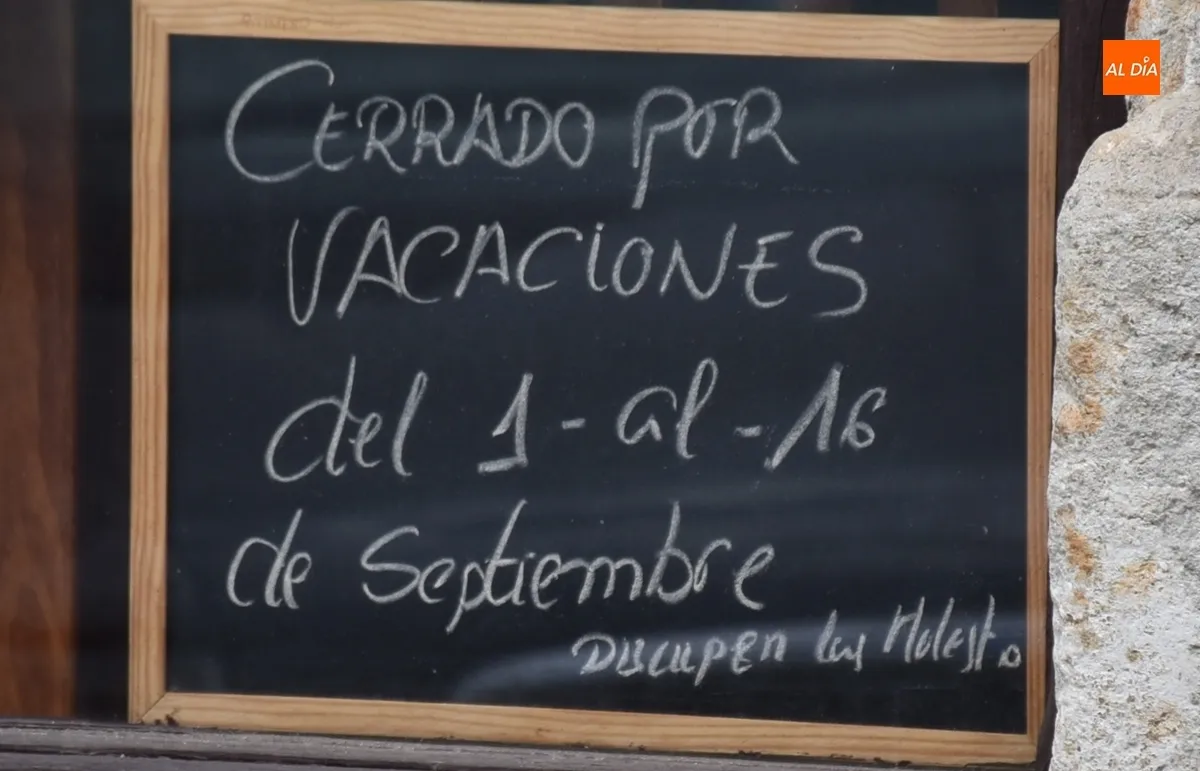 CERRADO POR
VACACIONES
del 1 - al - 16
de Septiembre
DISCUPEN las Molest.
AL DÍA